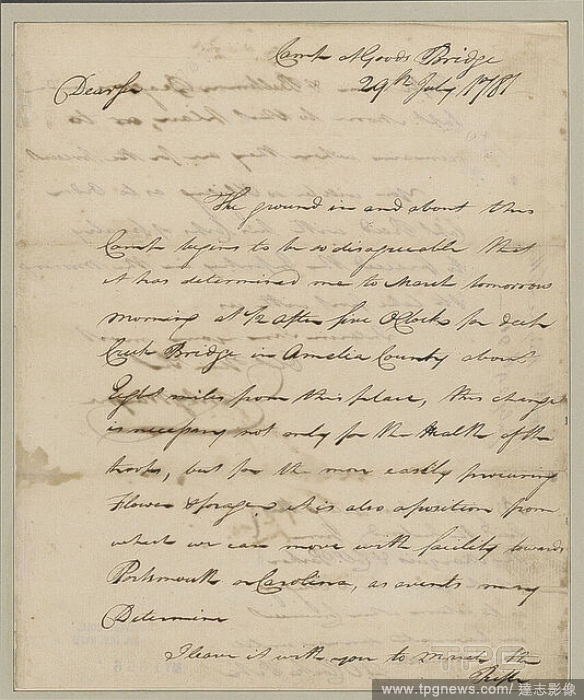 Camp at Goods Bridge
29th July 1781
Dear Sir
The ground in and about this
Camp begins to be so disagreeable that
it has determined me to March tomorrow
morning at ½ after five OClock for deep
Creek Bridge in Amelia County about
Eight miles from this place, this change
is necessary not only for the Health of the
troops, but for the more easily procuring
Flower & forage it is also a position from
which we can move with facility towards
Portsmouth or Carolina, as events may
Determine
I leave it with you to March the
Rifle
TPG
www.tpgnews.com / 達志影像